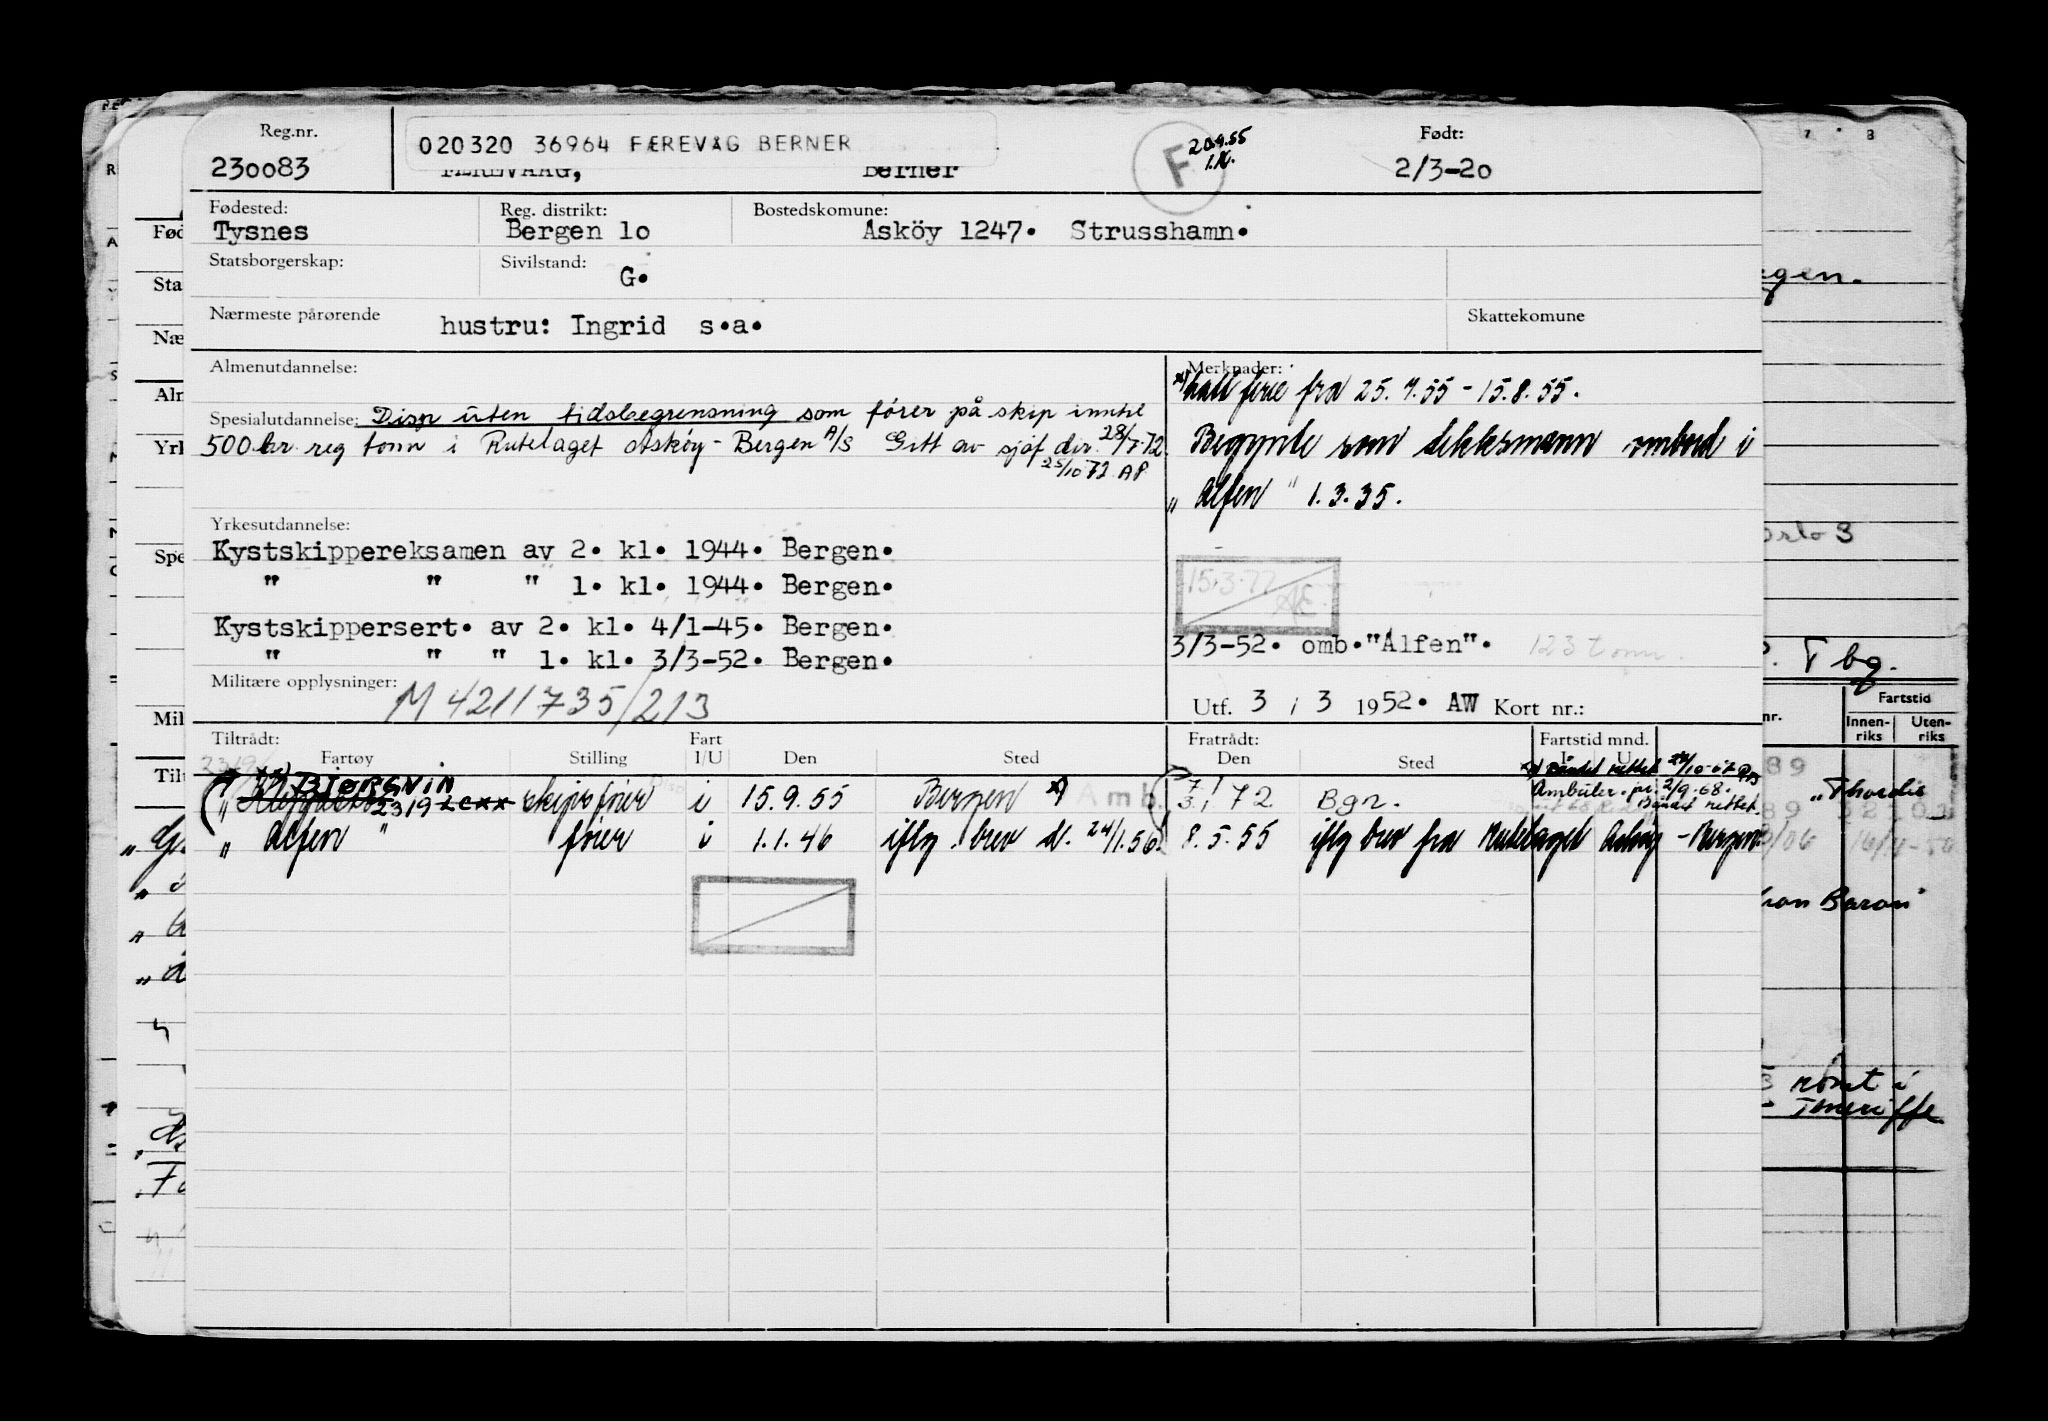 Reg.nr.
230083
020320 36964 FÆREVÅG BERNER
FÆREVAAG, Berner
F
20.9.55
Født:
2/3-20
Fødested:
Tysnes
Reg. distrikt:
Bergen 10
Bostedskomune:
Asköy 1247. Strusshamn.
Statsborgerskap:
Sivilstand:
G.
Nærmeste pårørende
hustru: Ingrid s.a.
Skattekomune
Almenutdannelse:
Spesialutdannelse: Disp uten tidsbegrensning som fører på skip inntil
500 br. reg tonn i Rutelaget Askøy - Bergen A/S Gitt av sjøf dir. 28/7-72.
25/10 72 AP
Merknader:
x) hatt ferie fra 25.7.55 - 15.8.55.
Begynte som dekksmann ombord i
„Alfen" 1.3.35.
Yrkesutdannelse:
Kystskippereksamen av 2. kl. 1944. Bergen.
" " " 1. kl. 1944. Bergen.
Kystskippersert. av 2. kl. 4/1-45. Bergen.
" " " 1. kl. 3/3-52. Bergen.
15.3.77
AE.
3/3-52. omb."Alfen". 123 tonn.
Militære opplysninger:
M 4211735/213
Utf. 3 i 3 1952. AW Kort nr.:
Tiltrådt:
Fartøy Stilling Fart I/U Den Sted
Fratrådt:
Den Sted
Fartstid mnd.
I U
2319
BJØRGVIN
2319 LEXX skipsfører i 15.9.55 Bergen x) Amb. 72 Bgr.
Ambuler. pr. 2/9.68.
Båndet rettet
„Alfen" fører i 1.1.46 iflg. brev d. 24/1.56. 8.5.55 iflg brev fra Rutelaget Askøy - Bergen
Oslo 3
Tbg.
Fartstid
Innen-
riks
Uten-
riks
„Thordis
Baron"
rømt i
Teneriffe